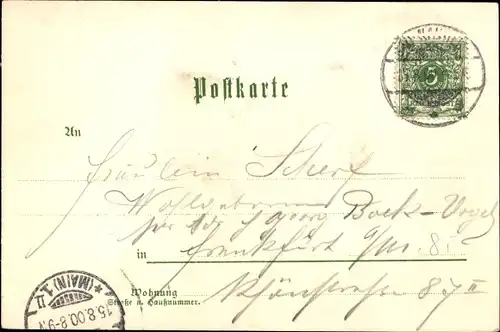 5
Postkarte
An
Fräulein Scherf
Wohlgeboren
Georg Bock-Vogel
in Frankfurt a/M.
Wohnung
Straße u. Hausnummer.
87 II
*(MAIN) 1. II
15.8.00. 8-9N